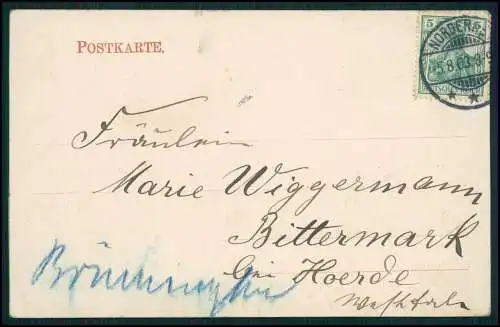 POSTKARTE.
5
NORDERNEY
5.8.03.8-9
Fräulein
Marie Wiggermann
Bittermark
bei Hoerde
Westfalen
Brünninghsn